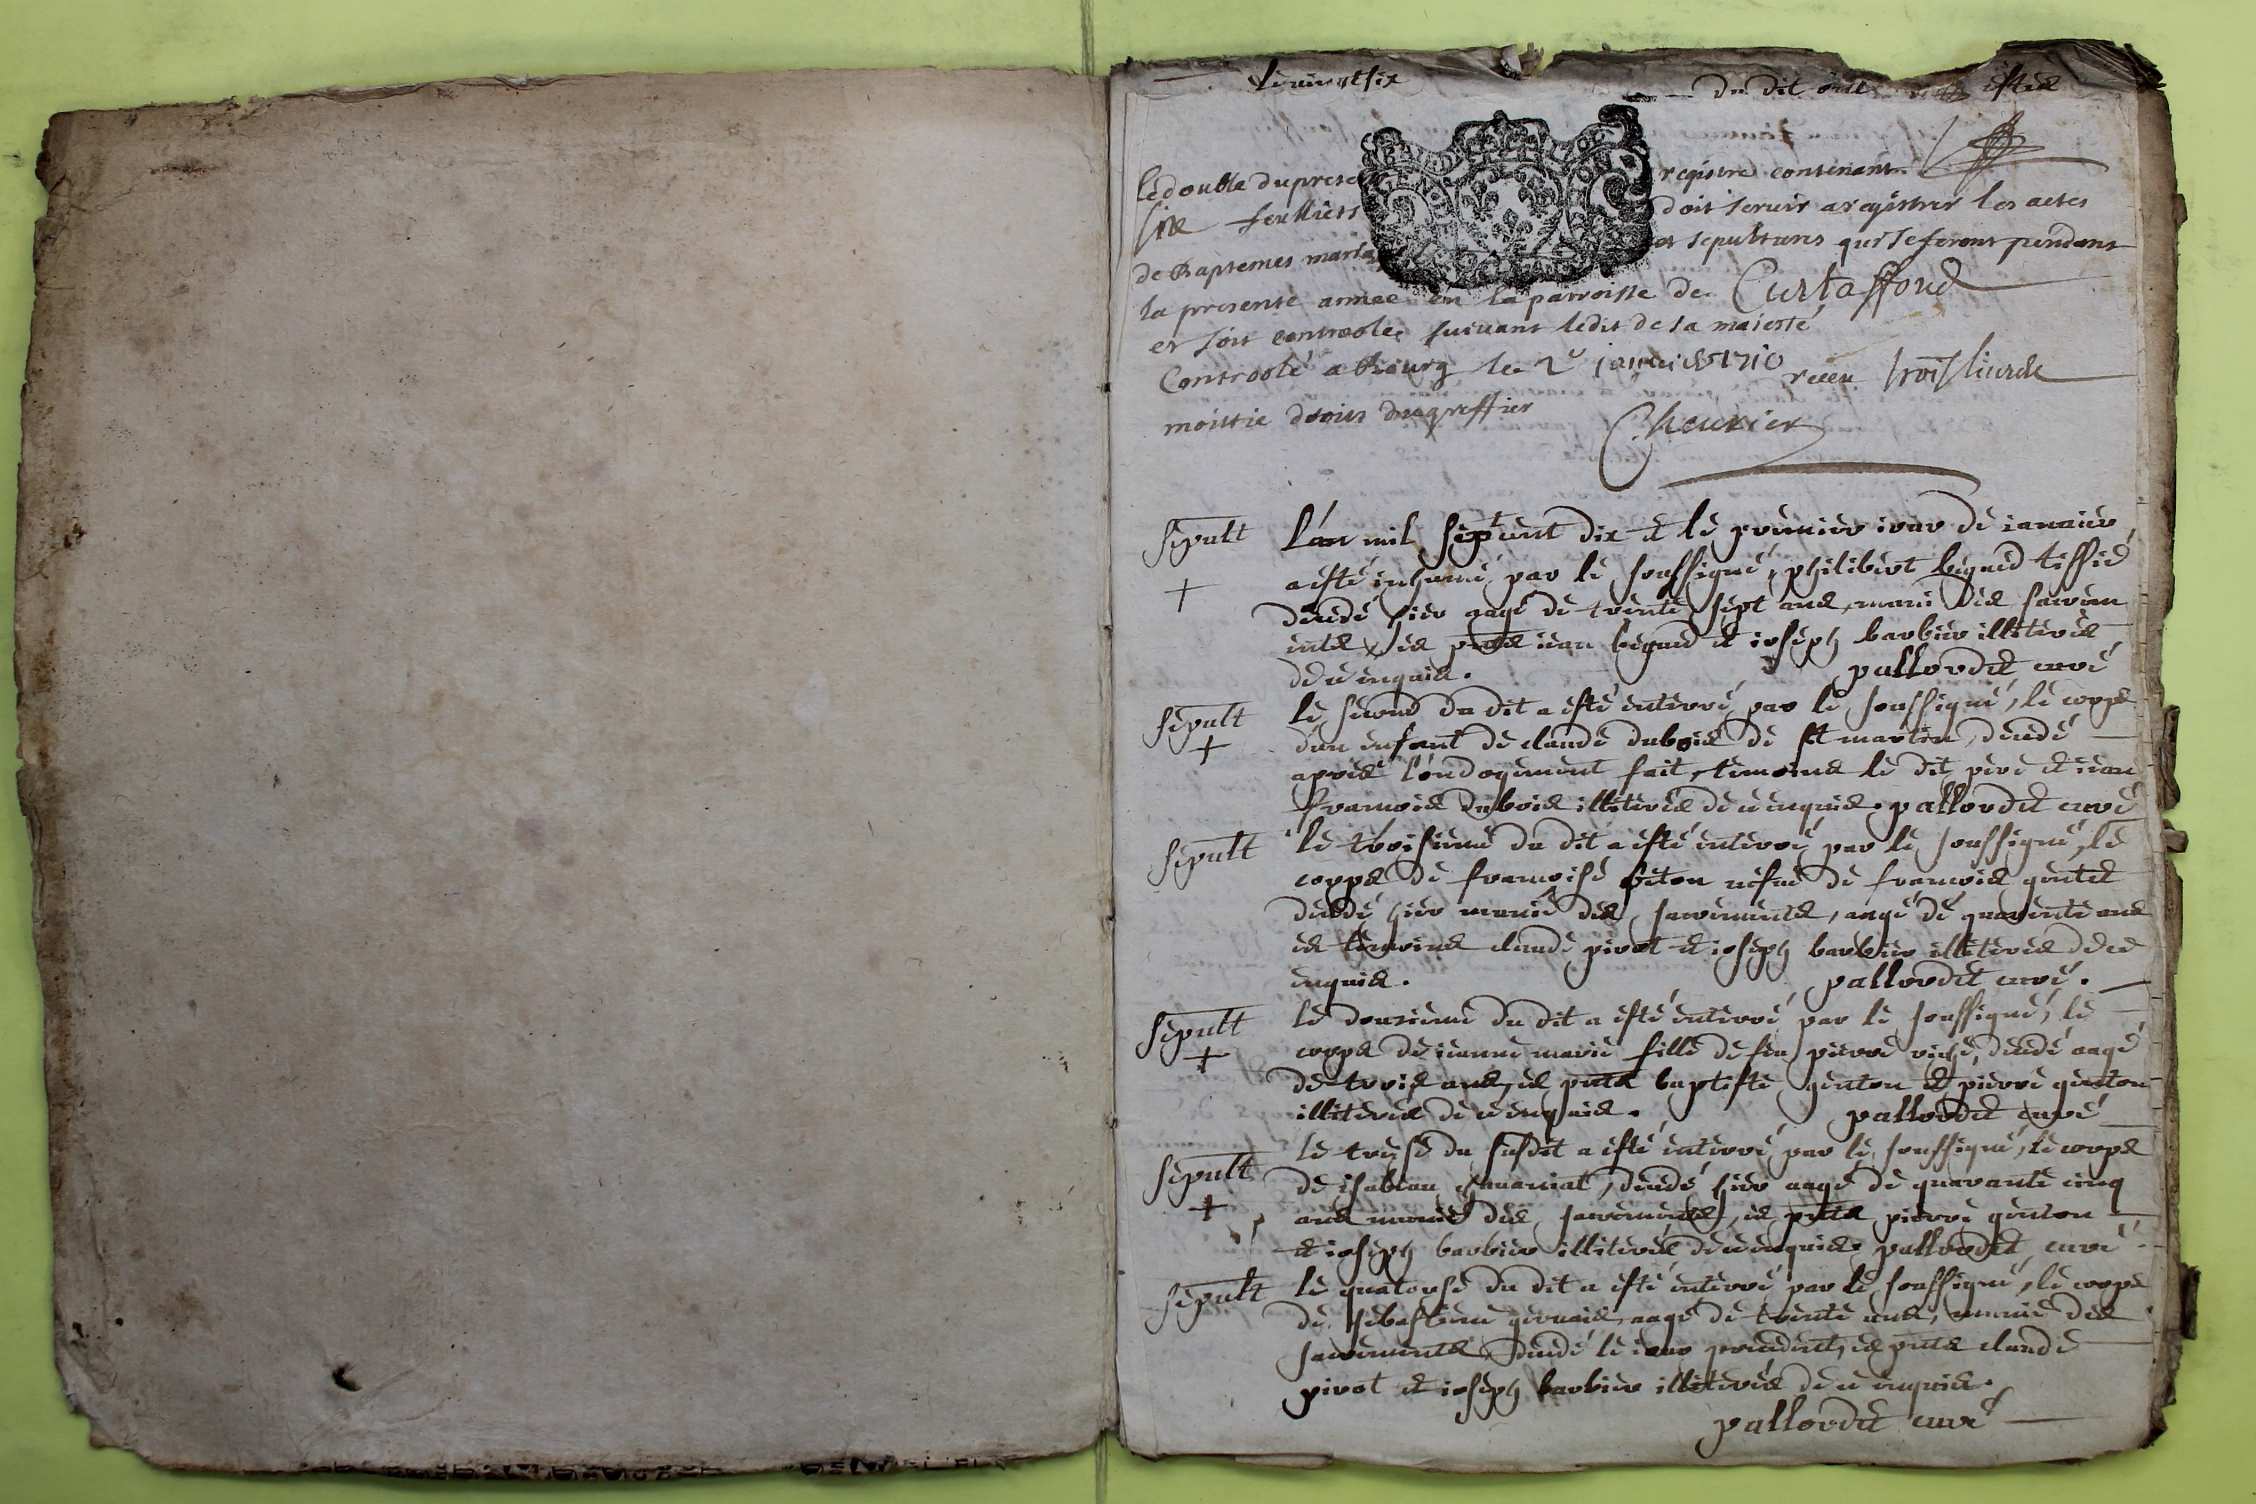 le vingt six du dit
le double du present registre contenant
six feulliets doit servir a registrer les actes
de Baptemes mariages et sepultures qui se feront pendant
la presente annee en la parroisse de Curtaffond
et soit controole suivant ledit de sa maiesté
Controolé a Bourg le 2e janvier 1710 receu trois livres
moittie droits du greffier
Cheurier
sepult l'an mil sept cent dix et le premier iour de ianvier
+ a esté inhumé par le soussigné, philibert begued tissié
decedé hier aagé de trente sept ans, muni des sacrem
ents, es pnts iean begued et ioseph barbier illiterés
de ce enquis. pallordet curé
sepult le second du dit a esté enterré par le soussigné, le corps
+ d'un enfant de claude dubois de st martin, decedé
apres l'ondoyement fait, temoins le dit pere et iean
francois dubois illiterés de ce enquis. pallordet curé
sepult le troisieme du dit a esté enterré par le soussigné, le
corps de francoise beton vefue de francois
decedé hier munie des sacrements, aagé de quarente ans
es temoins claude pirot et ioseph barbier illiterés de ce
enquis. pallordet curé.
sepult le dousieme du dit a esté enterré par le soussigné, le
+ corps de ieanne marie fille de feu pierre viché, decedé aagé
de trois ans, es pnts baptiste genton et pierre genton
illiterés de ce enquis. pallordet curé
le treise du susdit a esté enterré par le soussigné, le corps
sepult de isabeau decedé hier aagé de quarante cinq
+ ans munie des sacrements, es pnts pierre genton
et ioseph barbier illiterés de ce enquis. pallordet curé
sepult le quatorse du dit a esté enterré par le soussigné, le corps
de sebastiene gervais aagé de trente ans, munie des
sacrements, decedé le iour precedent, es pnts claude
pirot et ioseph barbier illiterés de ce enquis.
pallordet curé